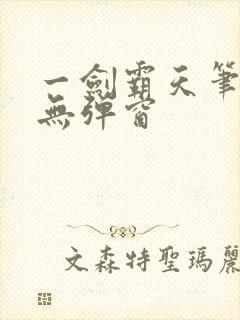 一劍霸天筆
無彈窗
文森特聖瑪麗